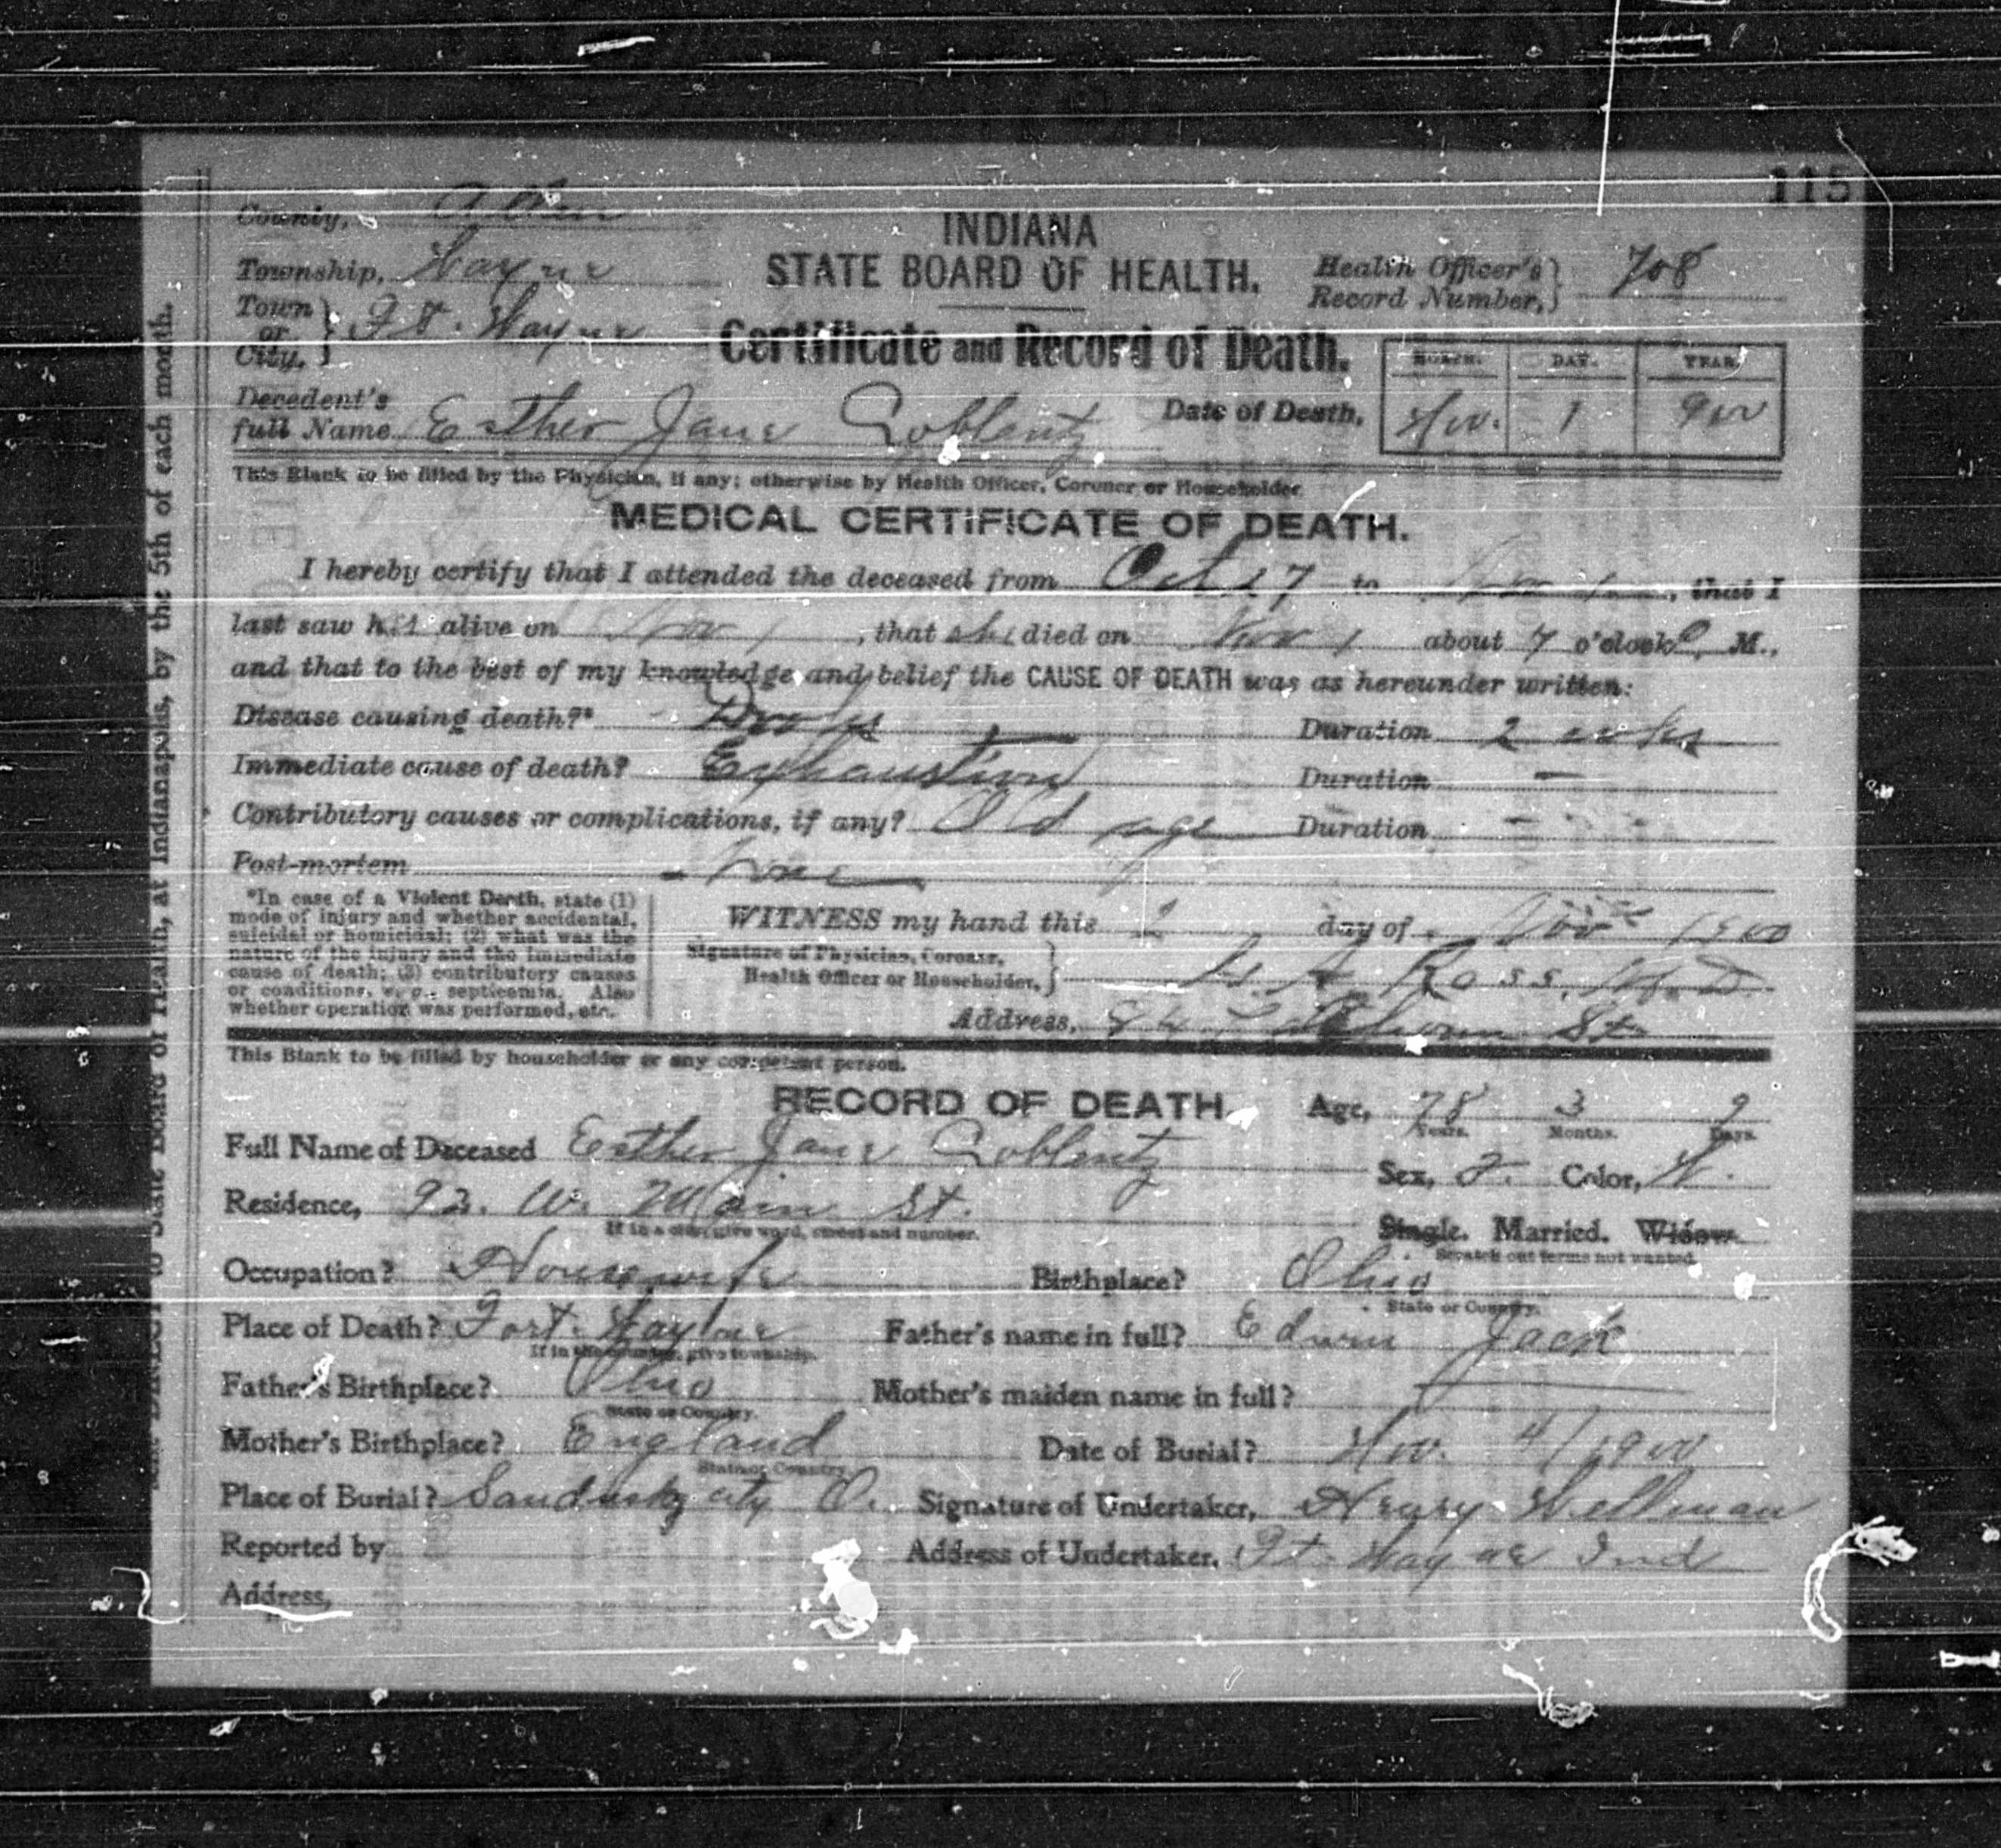 115
County, Allen
INDIANA
Township, Wayne
STATE BOARD OF HEALTH.
Health Officer's Record Number, 708
Town or City, Ft. Wayne
Certificate and Record of Death.
MONTH. DAY. YEAR
Decedent's full Name Esther Jane Coblentz
Date of Death, Nov. 1 900
This Blank to be filled by the Physician, if any; otherwise by Health Officer, Coroner or Householder
MEDICAL CERTIFICATE OF DEATH.
I hereby certify that I attended the deceased from Oct 17 to Nov 1, that I
last saw her alive on Nov 1, that she died on Nov 1 about 7 o'clock P. M.,
and that to the best of my knowledge and belief the CAUSE OF DEATH was as hereunder written:
Disease causing death?* Duration 2 wks
Immediate cause of death? Exhaustion Duration —
Contributory causes or complications, if any? Old age Duration —
Post-mortem None
*In case of a Violent Death, state (1)
mode of injury and whether accidental,
suicidal or homicidal; (2) what was the
nature of the injury and the immediate
cause of death; (3) contributory causes
or conditions, e. g., septicemia. Also
whether operation was performed, etc.
WITNESS my hand this 2 day of Nov 1900
Signature of Physician, Coroner,
Health Officer or Householder, Ross, M.D.
Address, Calhoun St
This Blank to be filled by householder or any competent person.
RECORD OF DEATH.
Age, 78 3 9
Years. Months. Days.
Full Name of Deceased Esther Jane Coblentz
Sex, F. Color, W.
Residence, 92. W. Main St.
If in a city, give ward, street and number.
Single. Married. Widow.
Scratch out terms not wanted
Occupation? Housewife Birthplace? Ohio
State or Country.
Place of Death? Fort Wayne Father's name in full? Edwin Jack
If in the country, give township.
Father's Birthplace? Ohio Mother's maiden name in full? —
State or Country.
Mother's Birthplace? England Date of Burial? Nov. 4/1900
State or Country
Place of Burial? Sandusky city O. Signature of Undertaker, Henry Wellman
Reported by Address of Undertaker, Ft. Wayne Ind
Address,
to State Board of Health, at Indianapolis, by the 5th of each month.